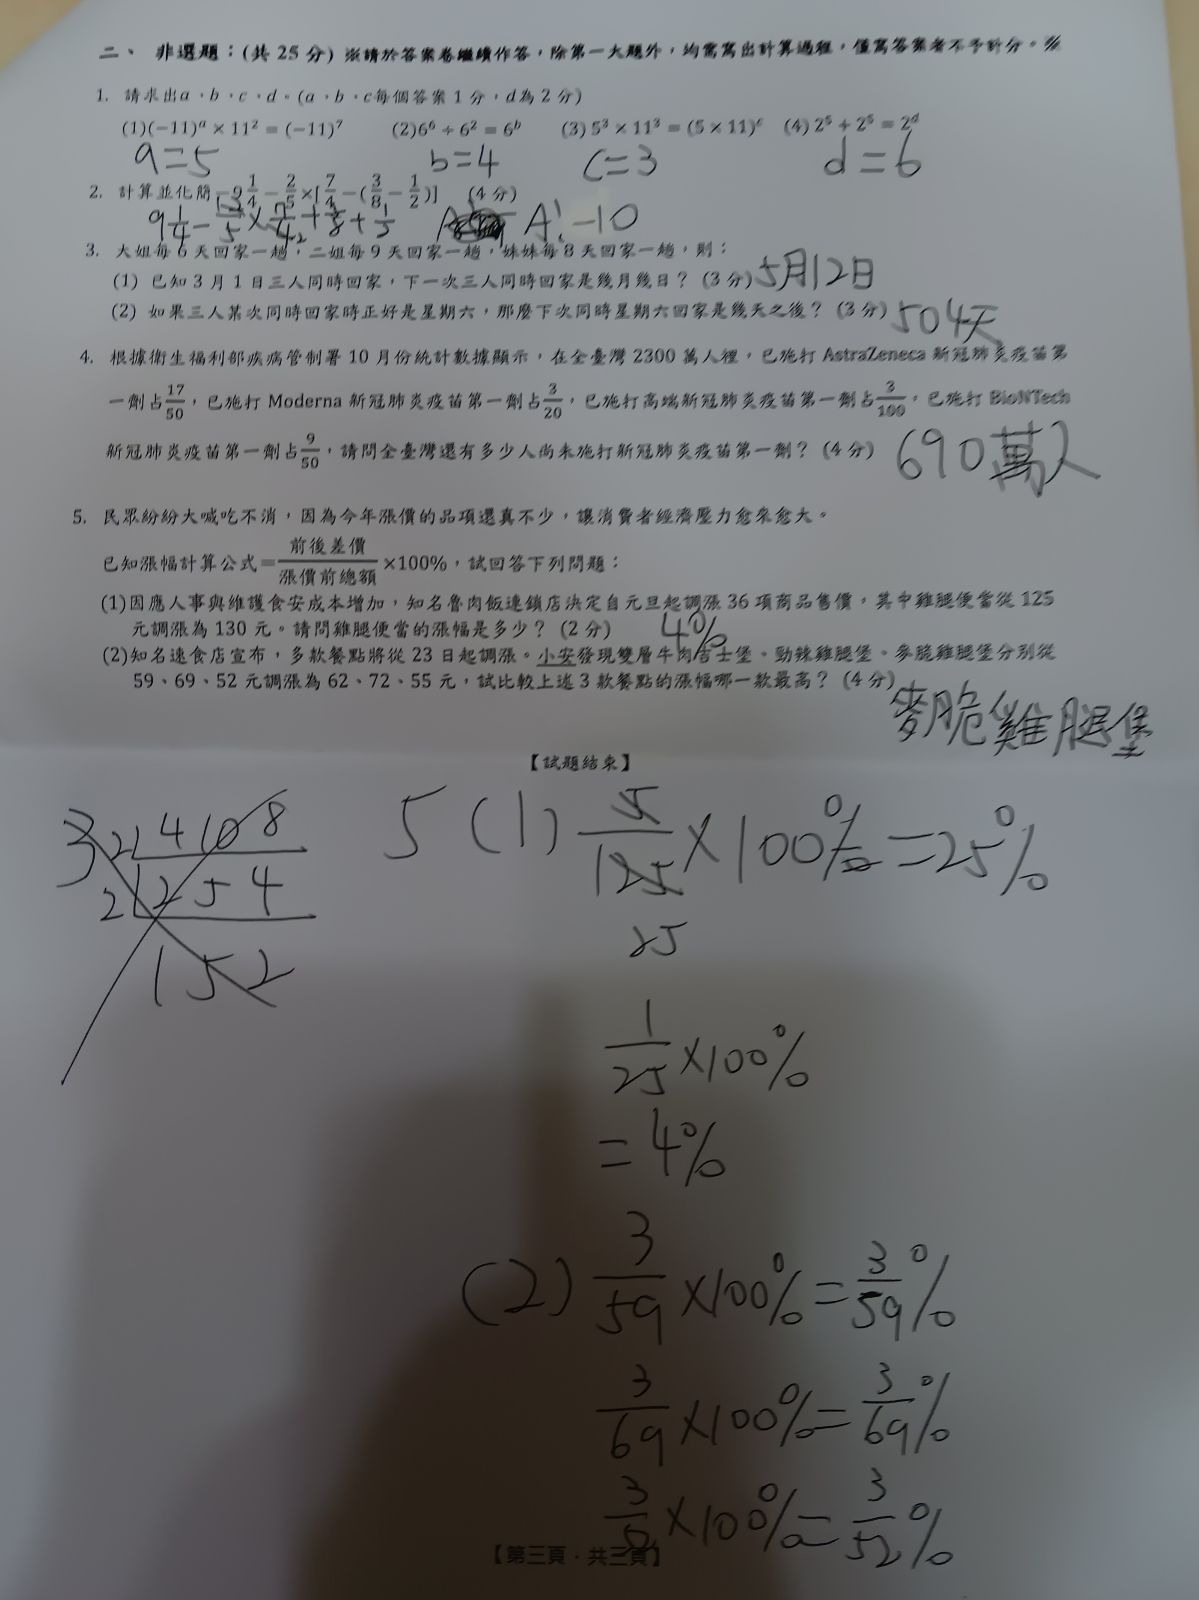 二、 非選題：(共 25 分) ※請於答案卷繼續作答，除第一大題外，均需寫出計算過程，僅寫答案者不予計分。※
1. 請求出a、b、c、d。(a、b、c每個答案 1 分，d為 2 分)
(1)(−11)ᵃ × 11² = (−11)⁷ (2)6⁶ ÷ 6² = 6ᵇ (3) 5³ × 11³ = (5 × 11)ᶜ (4) 2⁵ + 2⁵ = 2ᵈ
a=5 b=4 c=3 d=6
2. 計算並化簡−9 1/4 − 2/5 ×[7/4 − (3/8 − 1/2)] (4 分)
9 1/4 − A: −10
3. 大姐每 6 天回家一趟，二姐每 9 天回家一趟，妹妹每 8 天回家一趟，則：
(1) 已知 3 月 1 日三人同時回家，下一次三人同時回家是幾月幾日？ (3 分) 5月12日
(2) 如果三人某次同時回家時正好是星期六，那麼下次同時星期六回家是幾天之後？ (3 分) 504天
4. 根據衛生福利部疾病管制署 10 月份統計數據顯示，在全臺灣 2300 萬人裡，已施打 AstraZeneca 新冠肺炎疫苗第
一劑占17/50，已施打 Moderna 新冠肺炎疫苗第一劑占3/20，已施打高端新冠肺炎疫苗第一劑占3/100，已施打 BioNTech
新冠肺炎疫苗第一劑占9/50，請問全臺灣還有多少人尚未施打新冠肺炎疫苗第一劑？ (4 分) 690萬人
5. 民眾紛紛大喊吃不消，因為今年漲價的品項還真不少，讓消費者經濟壓力愈來愈大。
已知漲幅計算公式=前後差價/漲價前總額×100%，試回答下列問題：
(1)因應人事與維護食安成本增加，知名魯肉飯連鎖店決定自元旦起調漲 36 項商品售價，其中雞腿便當從 125
元調漲為 130 元。請問雞腿便當的漲幅是多少？ (2 分) 4%
(2)知名速食店宣布，多款餐點將從 23 日起調漲。小安發現雙層牛肉吉士堡、勁辣雞腿堡、麥脆雞腿堡分別從
59、69、52 元調漲為 62、72、55 元，試比較上述 3 款餐點的漲幅哪一款最高？ (4 分)
麥脆雞腿堡
【試題結束】
3 2 4 108
2 2 54
1 52
5 (1) 5/125 × 100% = 25%
25
1/25 × 100%
= 4%
(2) 3/59 × 100% = 3/59 %
3/69 × 100% = 3/69 %
3/52 × 100% = 3/52 %
【第三頁．共三頁】